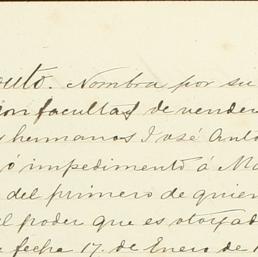 outo. Nombra por su
con facultad de vender
hermanos José Anto
ó impedimento á Ma
del primero de quien
el poder que es otorgad
fecha 17. de Enero de 1